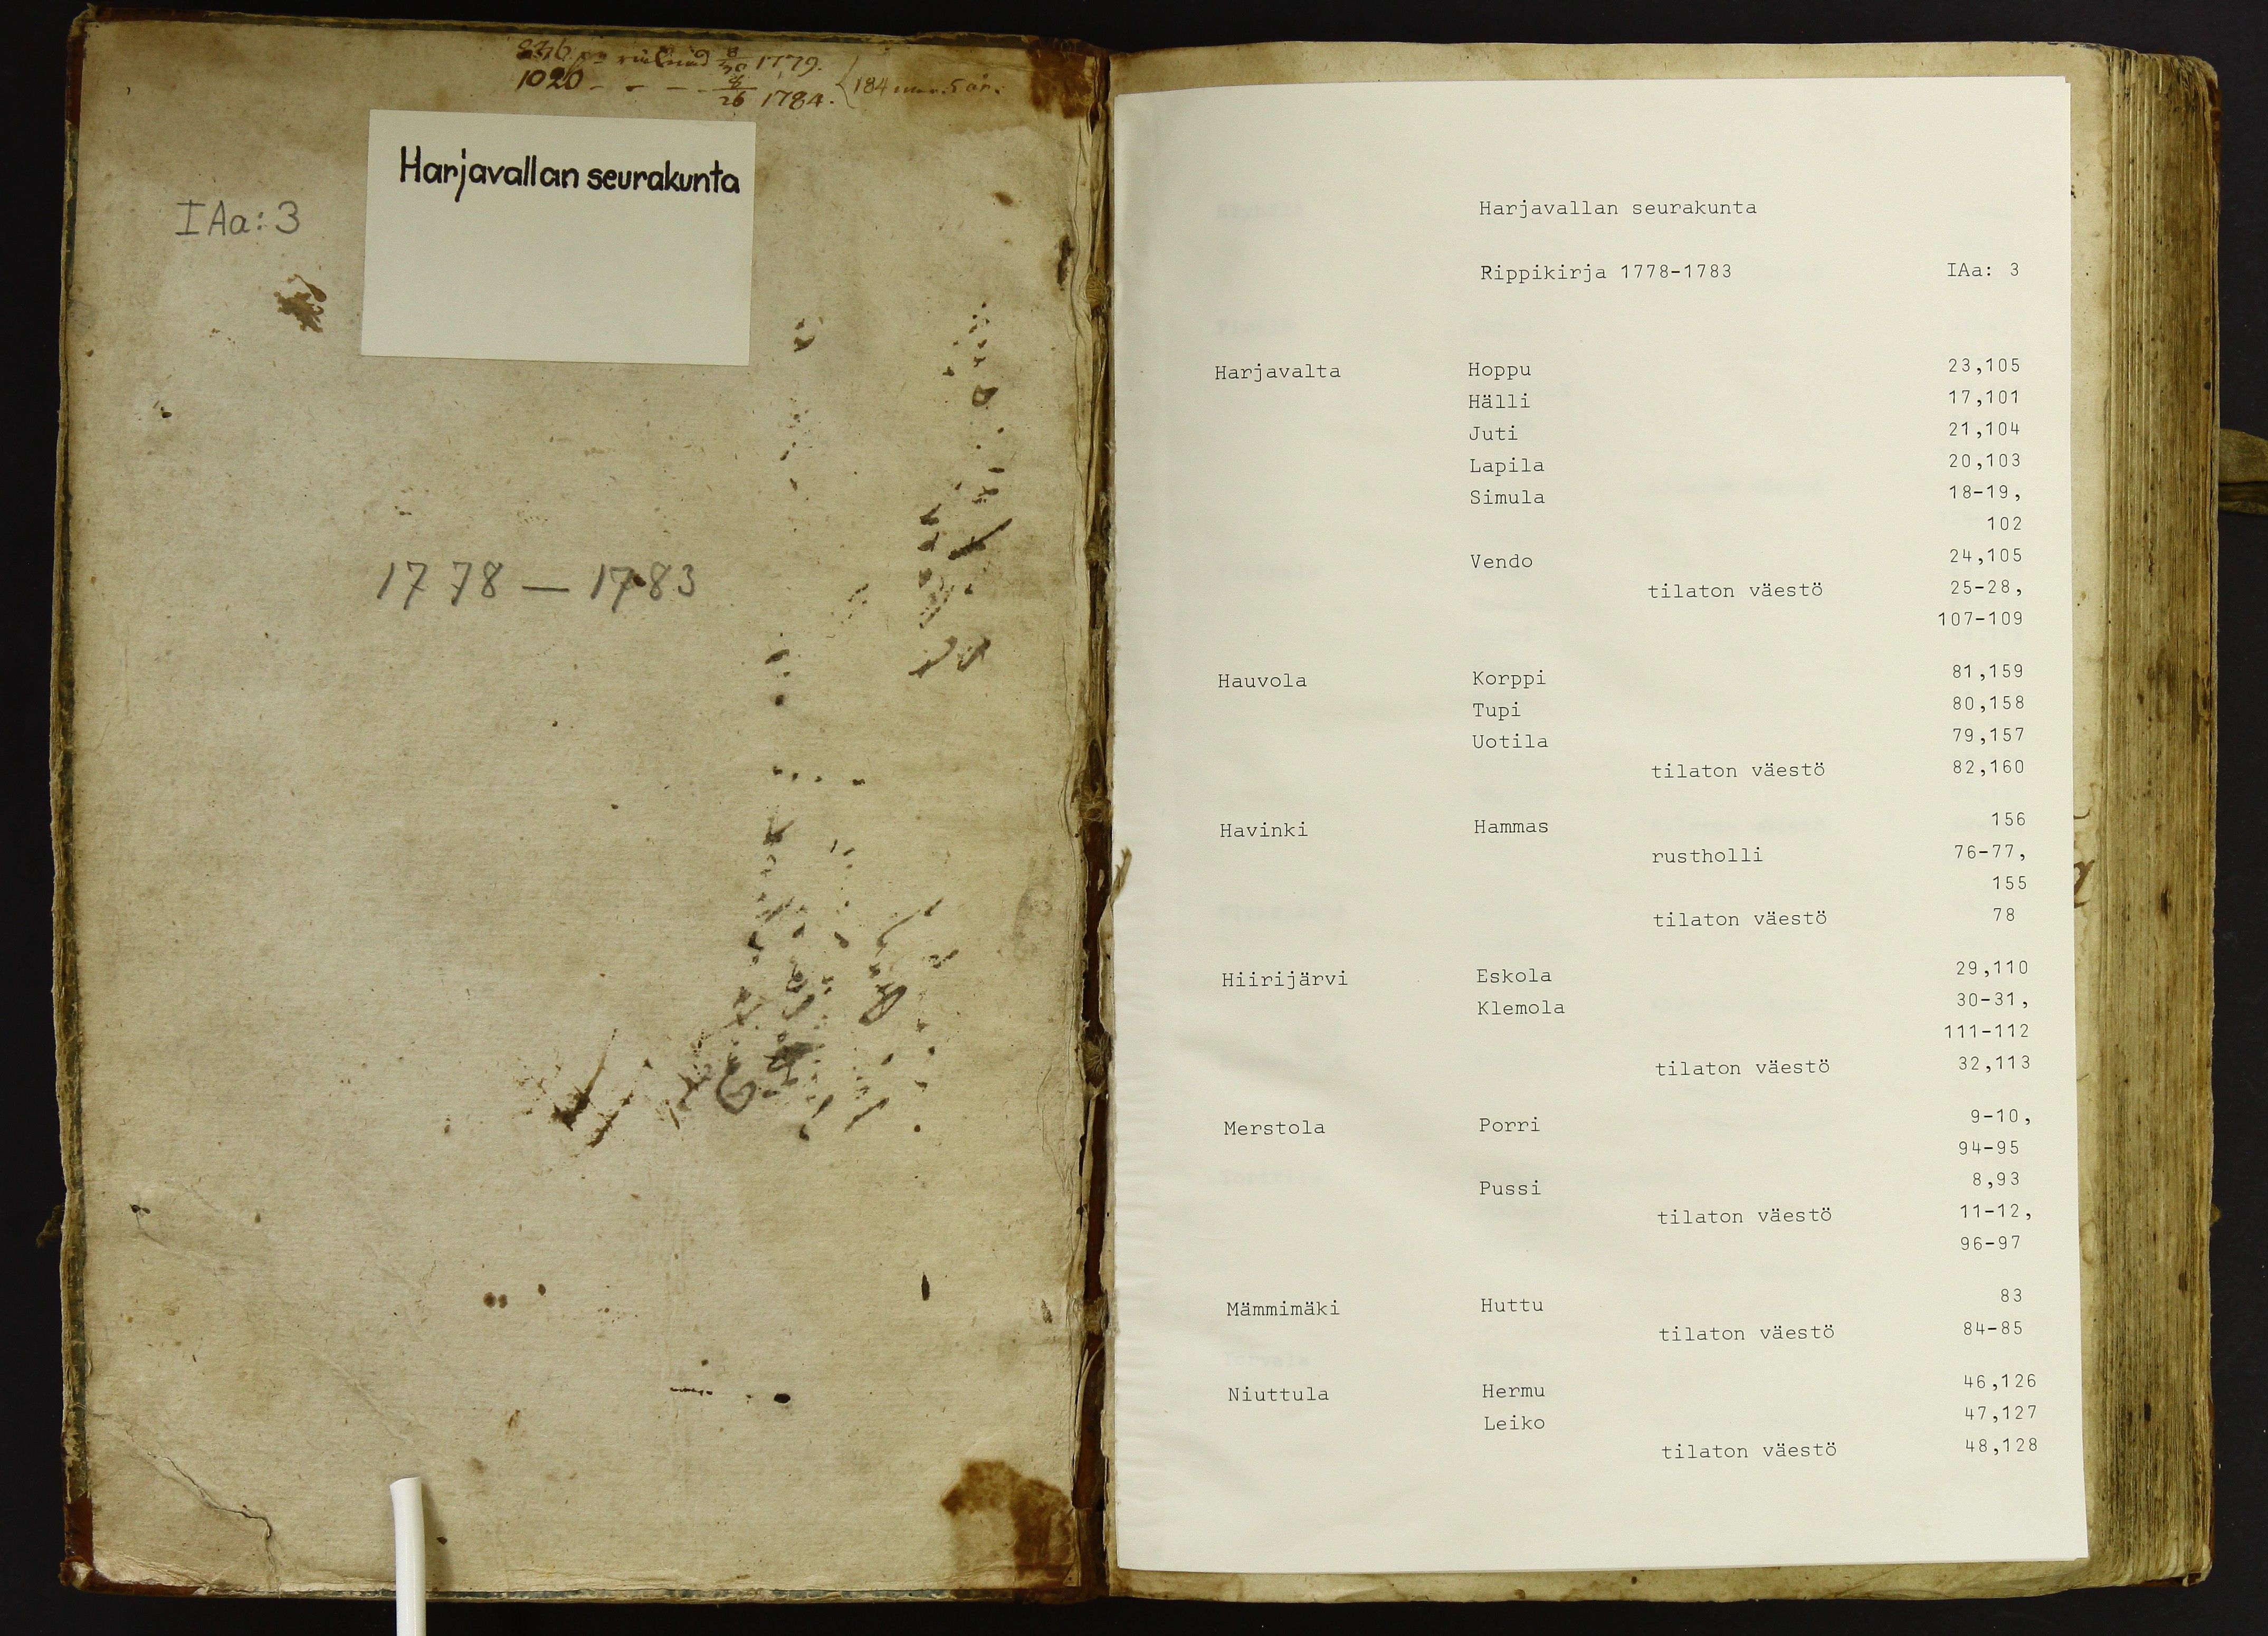 1779.
1020 - - - 26 1784. 184 5 år.
Harjavallan seurakunta
IAa:3
1778 — 1783
Harjavallan seurakunta
Rippikirja 1778-1783 IAa: 3
Harjavalta Hoppu 23,105
Hälli 17,101
Juti 21,104
Lapila 20,103
Simula 18-19,
102
Vendo 24,105
tilaton väestö 25-28,
107-109
Hauvola Korppi 81,159
Tupi 80,158
Uotila 79,157
tilaton väestö 82,160
Havinki Hammas 156
rustholli 76-77,
155
tilaton väestö 78
Hiirijärvi Eskola 29,110
Klemola 30-31,
111-112
tilaton väestö 32,113
Merstola Porri 9-10,
94-95
Pussi 8,93
tilaton väestö 11-12,
96-97
Mämmimäki Huttu 83
tilaton väestö 84-85
Niuttula Hermu 46,126
Leiko 47,127
tilaton väestö 48,128